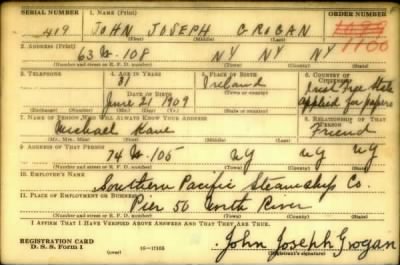 SERIAL NUMBER 1. NAME (Print) ORDER NUMBER
419 JOHN JOSEPH GROGAN 1100
(First) (Middle) (Last)
2. ADDRESS (Print)
63 W-108 NY NY NY
(Number and street or R. F. D. number) (Town) (County) (State)
3. TELEPHONE 4. AGE IN YEARS 5. PLACE OF BIRTH 6. COUNTRY OF CITIZENSHIP
31 Ireland Irish Free State
DATE OF BIRTH (Town or county) applied for papers
June 21 1909
(Exchange) (Number) (Mo.) (Day) (Yr.) (State or country)
7. NAME OF PERSON WHO WILL ALWAYS KNOW YOUR ADDRESS 8. RELATIONSHIP OF THAT PERSON
Michael Kane Friend
(Mr., Mrs., Miss) (First) (Middle) (Last)
9. ADDRESS OF THAT PERSON
74 W 105 NY NY NY
(Number and street or R. F. D. number) (Town) (County) (State)
10. EMPLOYER'S NAME
Southern Pacific Steamship Co.
11. PLACE OF EMPLOYMENT OR BUSINESS
Pier 50 North River
(Number and street or R. F. D. number) (Town) (County) (State)
I AFFIRM THAT I HAVE VERIFIED ABOVE ANSWERS AND THAT THEY ARE TRUE.
REGISTRATION CARD
D. S. S. Form 1 John Joseph Grogan
(Registrant's signature)